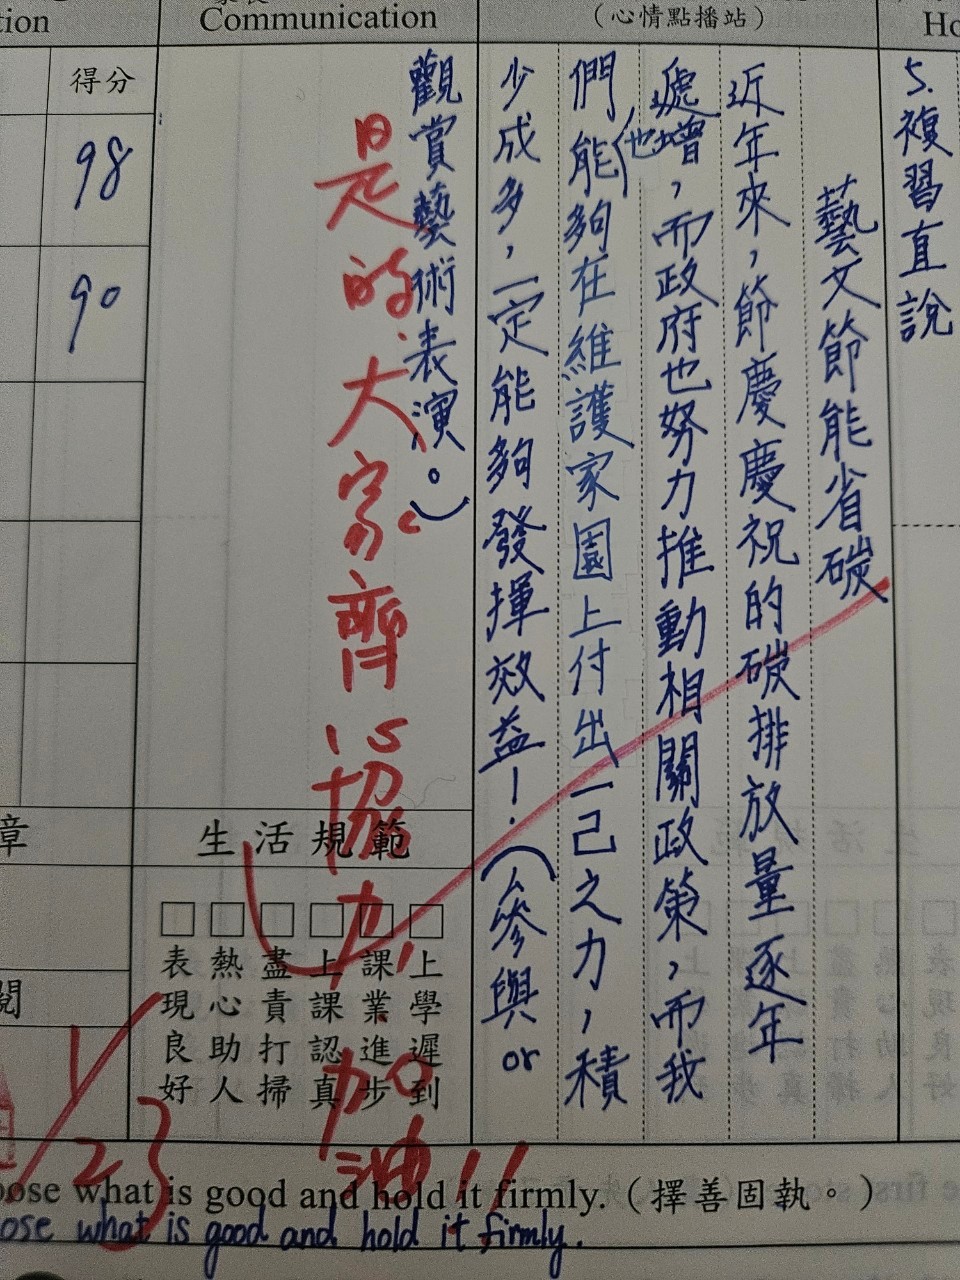 tion
Communication
（心情點播站）
Ho
得分
98
90
5.複習直說
藝文節能省碳
近年來，節慶慶祝的碳排放量逐年
遞增，而政府也努力推動相關政策，而我
們能(也)夠在維護家園上付出一己之力，積
少成多，一定能夠發揮效益！（參與 or
觀賞藝術表演。）
是的，大家齊心協力，加油！！
章
生活規範
□上學遲到
□課業進步
□上課認真
□盡責打掃
□熱心助人
□表現良好
閱
1/23
oose what is good and hold it firmly.（擇善固執。）
ose what is good and hold it firmly.